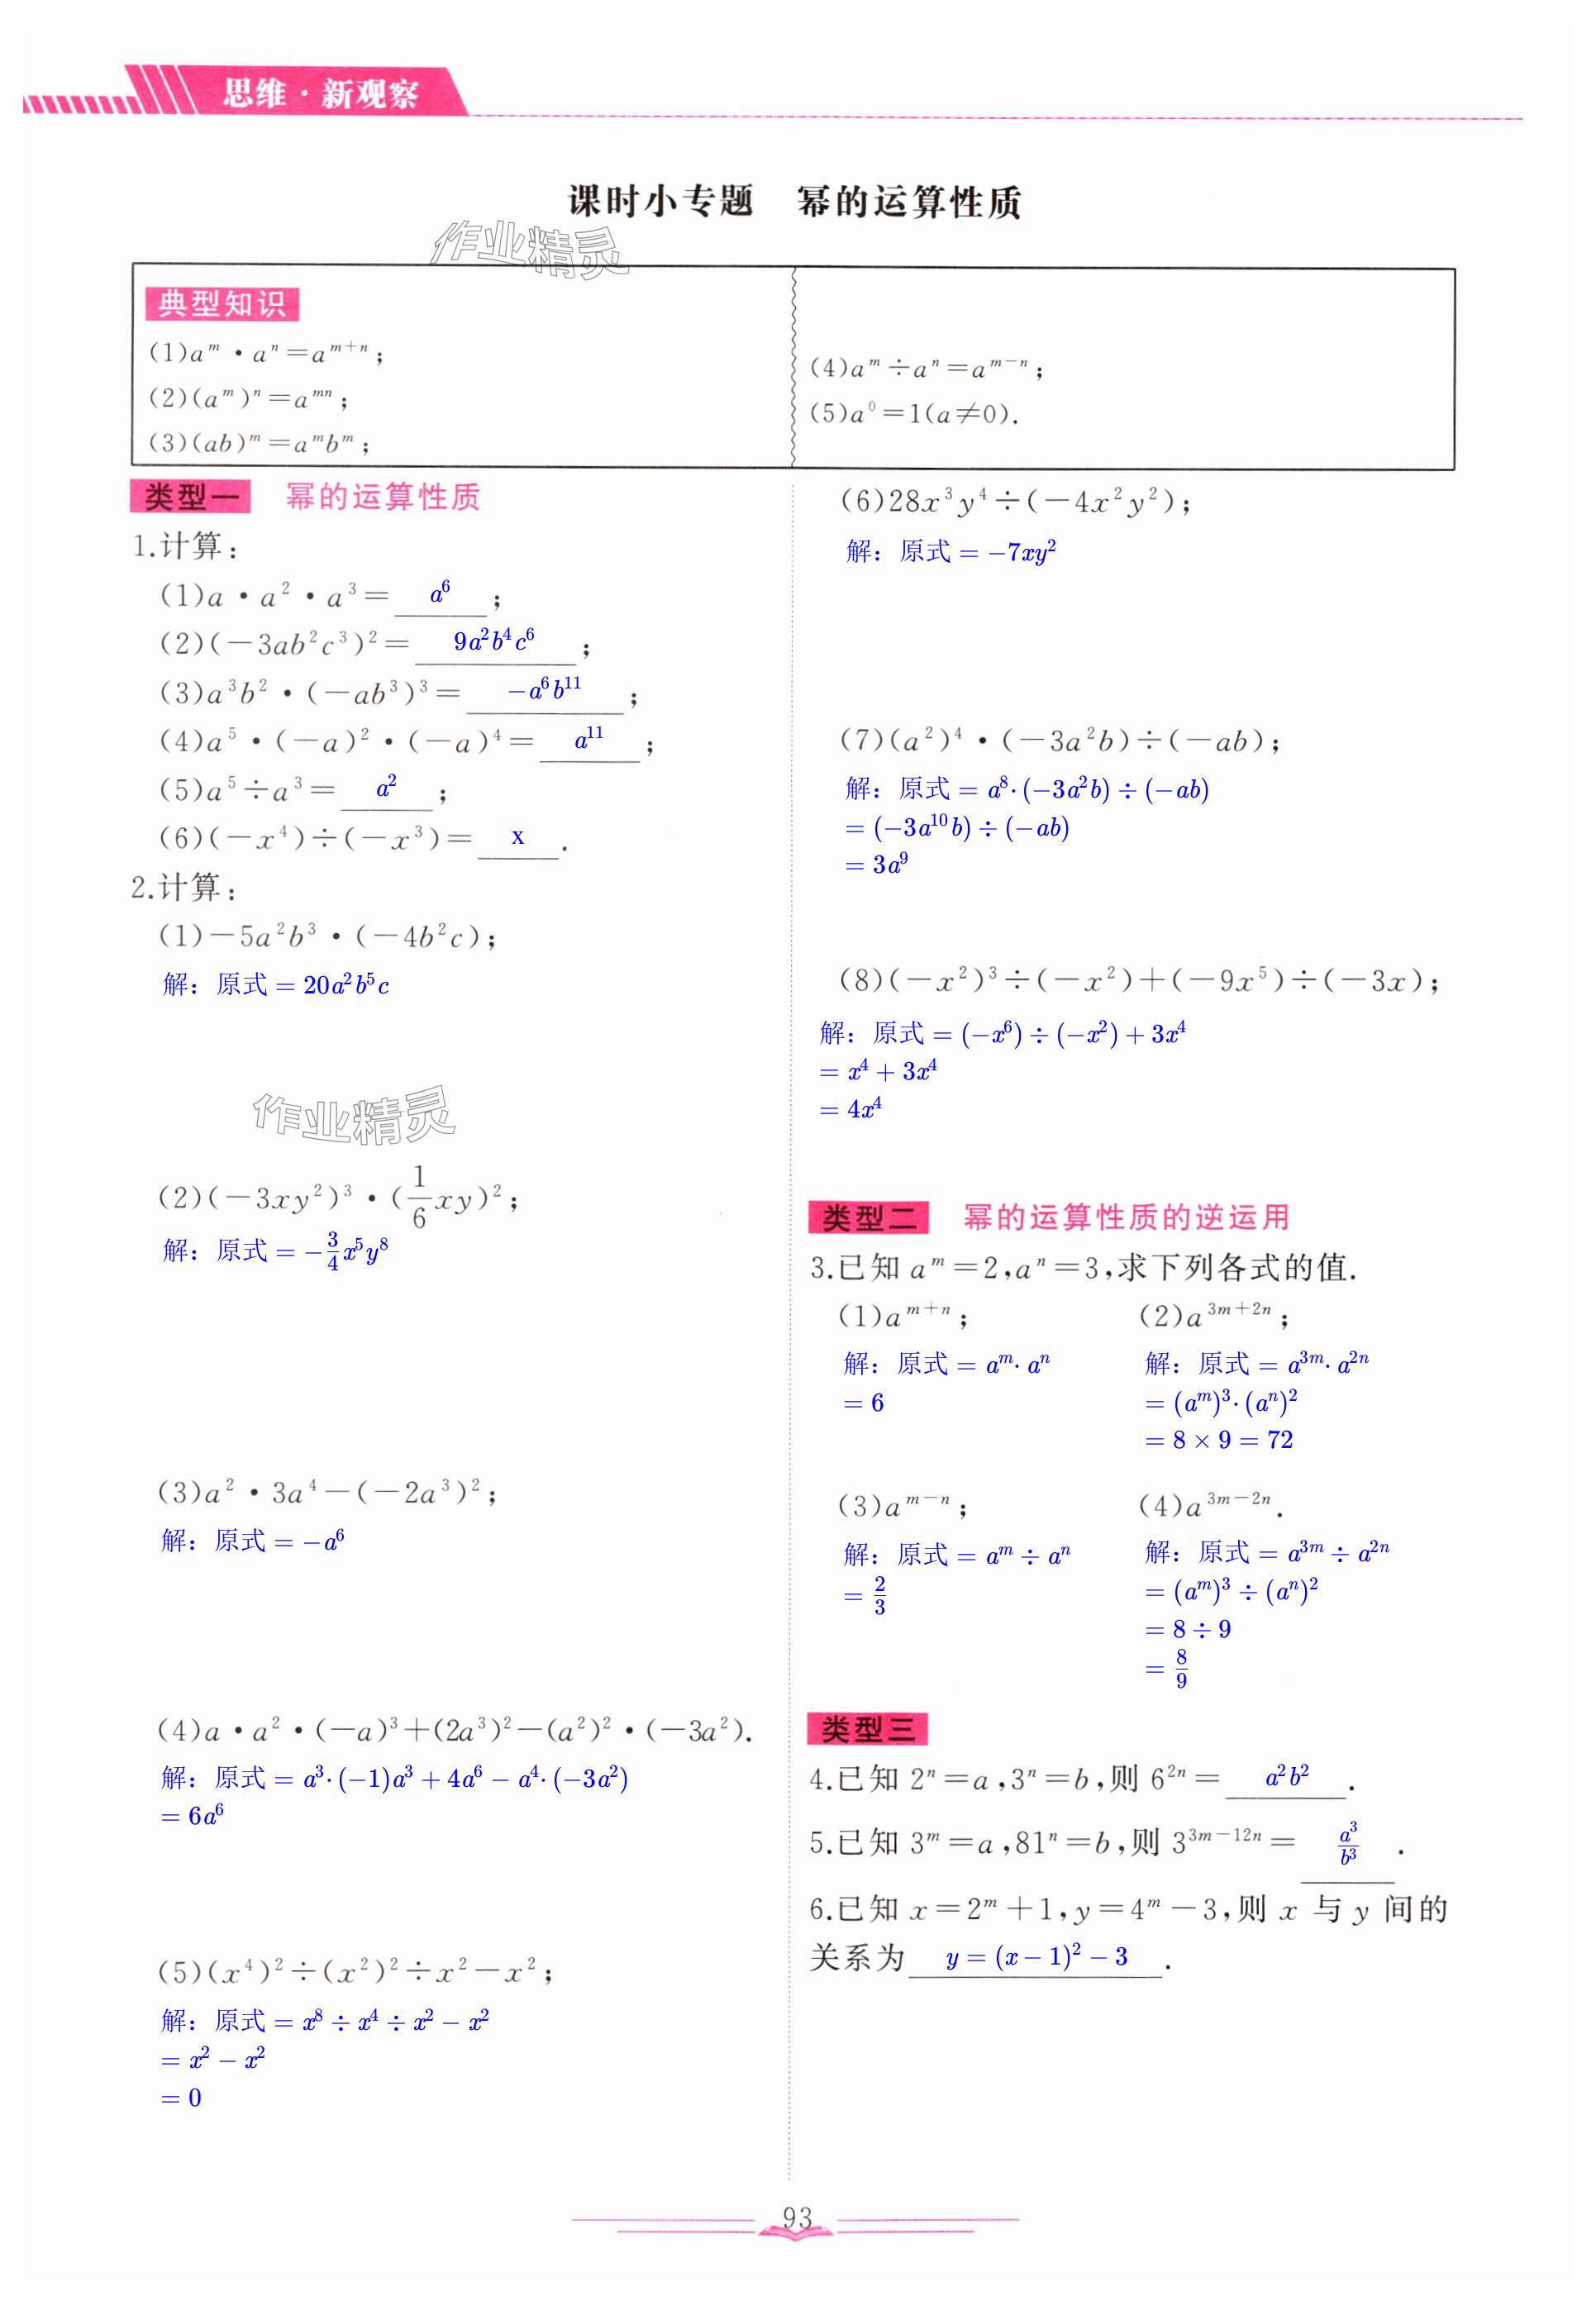 思维·新观察
课时小专题 幂的运算性质
作业精灵
典型知识
(1)aᵐ·aⁿ=aᵐ⁺ⁿ;
(2)(aᵐ)ⁿ=aᵐⁿ;
(3)(ab)ᵐ=aᵐbᵐ;
(4)aᵐ÷aⁿ=aᵐ⁻ⁿ;
(5)a⁰=1(a≠0).
类型一 幂的运算性质
1.计算:
(1)a·a²·a³= a⁶ ;
(2)(-3ab²c³)²= 9a²b⁴c⁶ ;
(3)a³b²·(-ab³)³= -a⁶b¹¹ ;
(4)a⁵·(-a)²·(-a)⁴= a¹¹ ;
(5)a⁵÷a³= a² ;
(6)(-x⁴)÷(-x³)= x .
2.计算:
(1)-5a²b³·(-4b²c);
解:原式=20a²b⁵c
作业精灵
(2)(-3xy²)³·(1/6 xy)²;
解:原式=-3/4 x⁵y⁸
(3)a²·3a⁴-(-2a³)²;
解:原式=-a⁶
(4)a·a²·(-a)³+(2a³)²-(a²)²·(-3a²).
解:原式=a³·(-1)a³+4a⁶-a⁴·(-3a²)
=6a⁶
(5)(x⁴)²÷(x²)²÷x²-x²;
解:原式=x⁸÷x⁴÷x²-x²
=x²-x²
=0
(6)28x³y⁴÷(-4x²y²);
解:原式=-7xy²
(7)(a²)⁴·(-3a²b)÷(-ab);
解:原式=a⁸·(-3a²b)÷(-ab)
=(-3a¹⁰b)÷(-ab)
=3a⁹
(8)(-x²)³÷(-x²)+(-9x⁵)÷(-3x);
解:原式=(-x⁶)÷(-x²)+3x⁴
=x⁴+3x⁴
=4x⁴
类型二 幂的运算性质的逆运用
3.已知 aᵐ=2,aⁿ=3,求下列各式的值.
(1)aᵐ⁺ⁿ; (2)a³ᵐ⁺²ⁿ;
解:原式=aᵐ·aⁿ 解:原式=a³ᵐ·a²ⁿ
=6 =(aᵐ)³·(aⁿ)²
=8×9=72
(3)aᵐ⁻ⁿ; (4)a³ᵐ⁻²ⁿ.
解:原式=aᵐ÷aⁿ 解:原式=a³ᵐ÷a²ⁿ
=2/3 =(aᵐ)³÷(aⁿ)²
=8÷9
=8/9
类型三
4.已知 2ⁿ=a,3ⁿ=b,则 6²ⁿ= a²b² .
5.已知 3ᵐ=a,81ⁿ=b,则 3³ᵐ⁻¹²ⁿ= a³/b³ .
6.已知 x=2ᵐ+1,y=4ᵐ-3,则 x 与 y 间的
关系为 y=(x-1)²-3 .
93